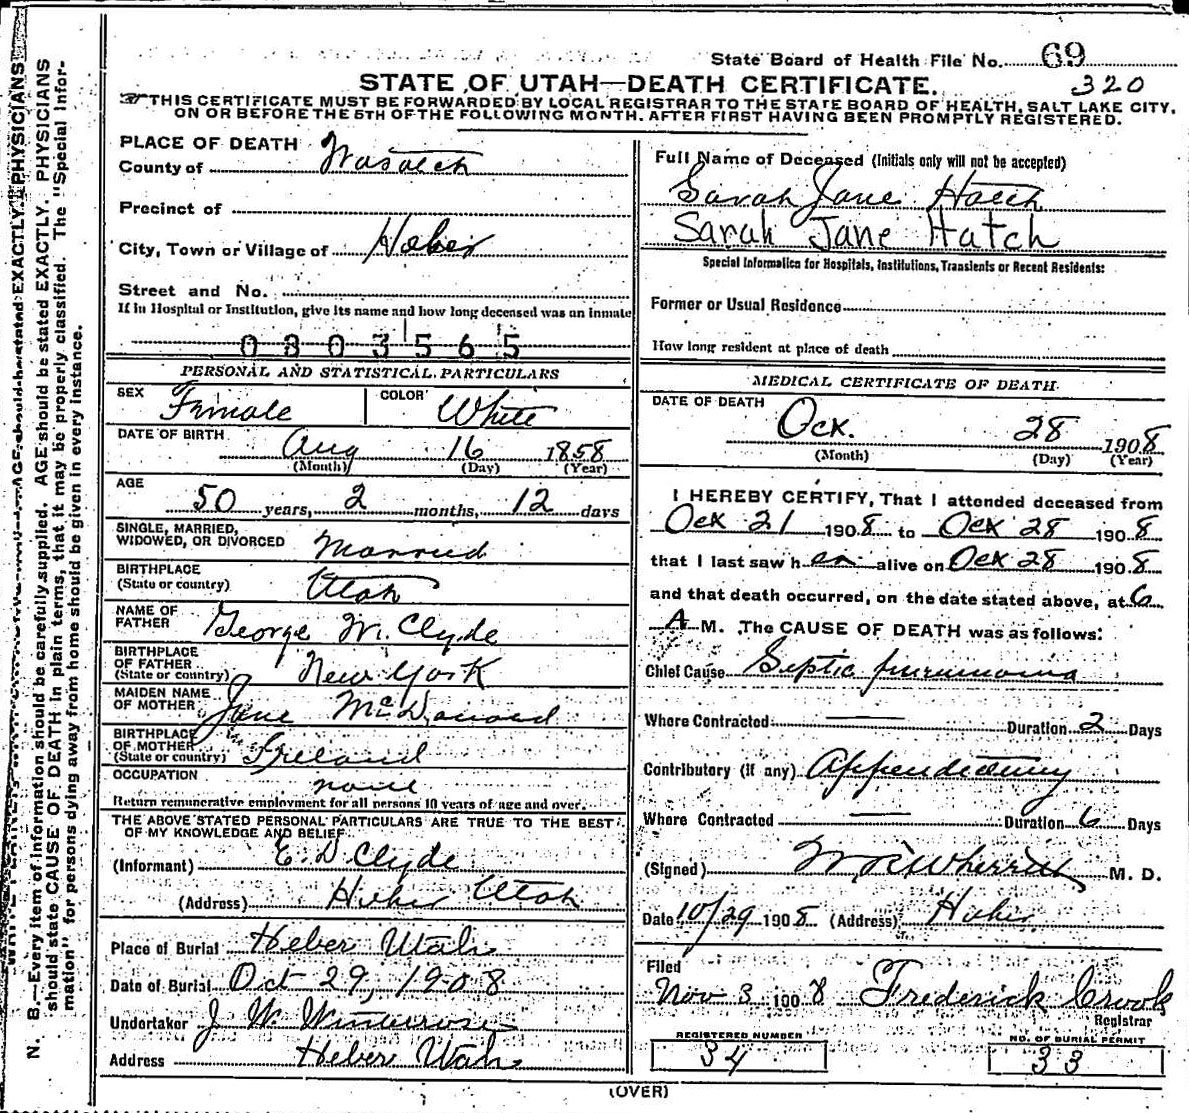 State Board of Health File No. 69
STATE OF UTAH—DEATH CERTIFICATE. 320
THIS CERTIFICATE MUST BE FORWARDED BY LOCAL REGISTRAR TO THE STATE BOARD OF HEALTH, SALT LAKE CITY,
ON OR BEFORE THE 5TH OF THE FOLLOWING MONTH, AFTER FIRST HAVING BEEN PROMPTLY REGISTERED.
PLACE OF DEATH
County of Wasatch
Precinct of
City, Town or Village of Heber
Street and No.
If in Hospital or Institution, give its name and how long deceased was an inmate
0803565
PERSONAL AND STATISTICAL PARTICULARS
SEX Female COLOR White
DATE OF BIRTH Aug 16 1858
(Month) (Day) (Year)
AGE
50 years, 2 months, 12 days
SINGLE, MARRIED,
WIDOWED, OR DIVORCED Married
BIRTHPLACE
(State or country) Utah
NAME OF
FATHER George W. Clyde
BIRTHPLACE
OF FATHER
(State or country) New York
MAIDEN NAME
OF MOTHER Jane McDonald
BIRTHPLACE
OF MOTHER
(State or country) Ireland
OCCUPATION none
Return remunerative employment for all persons 10 years of age and over.
THE ABOVE STATED PERSONAL PARTICULARS ARE TRUE TO THE BEST
OF MY KNOWLEDGE AND BELIEF
(Informant) E. D. Clyde
(Address) Heber Utah
Place of Burial Heber Utah
Date of Burial Oct 29, 1908
Undertaker J W Winterose
Address Heber Utah
Full Name of Deceased (Initials only will not be accepted)
Sarah Jane Hatch
Sarah Jane Hatch
Special Information for Hospitals, Institutions, Transients or Recent Residents:
Former or Usual Residence
How long resident at place of death
MEDICAL CERTIFICATE OF DEATH.
DATE OF DEATH
Oct. 28 1908
(Month) (Day) (Year)
I HEREBY CERTIFY, That I attended deceased from
Oct 21 1908 to Oct 28 1908
that I last saw her alive on Oct 28 1908
and that death occurred, on the date stated above, at 6
A M. The CAUSE OF DEATH was as follows:
Chief Cause Septic pneumonia
Where Contracted — Duration 2 Days
Contributory (if any)
Where Contracted — Duration 6 Days
(Signed) W R Wherritt M. D.
Date 10/29 1908 (Address) Heber
Filed
Nov 3 1908 Frederick Crook
Registrar
REGISTERED NUMBER
34
NO. OF BURIAL PERMIT
33
(OVER)
N. B.—Every item of information should be carefully supplied. AGE should be stated EXACTLY. PHYSICIANS
should state CAUSE OF DEATH in plain terms, that it may be properly classified. The "Special Infor-
mation" for persons dying away from home should be given in every instance.